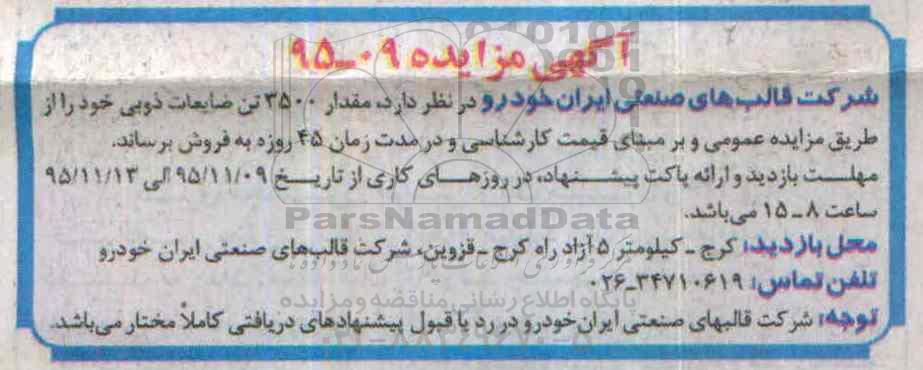 آگهی مزایده ۰۹-۹۵
شرکت قالب‌های صنعتی ایران خودرو در نظر دارد، مقدار ۳۵۰۰ تن ضایعات ذوبی خود را از
طریق مزایده عمومی و بر مبنای قیمت کارشناسی و در مدت زمان ۴۵ روزه به فروش برساند.
مهلت بازدید و ارائه پاکت پیشنهاد، در روزهای کاری از تاریخ ۹۵/۱۱/۰۹ الی ۹۵/۱۱/۱۳
ساعت ۸ ـ ۱۵ می‌باشد.
ParsNamadData
محل بازدید: کرج ـ کیلومتر ۵ آزاد راه کرج ـ قزوین، شرکت قالب‌های صنعتی ایران خودرو
تلفن تماس: ۳۴۷۱۰۶۱۹-۰۲۶
پایگاه اطلاع رسانی مناقصه و مزایده
توجه: شرکت قالبهای صنعتی ایران‌خودرو در رد یا قبول پیشنهادهای دریافتی کاملاً مختار می‌باشد.